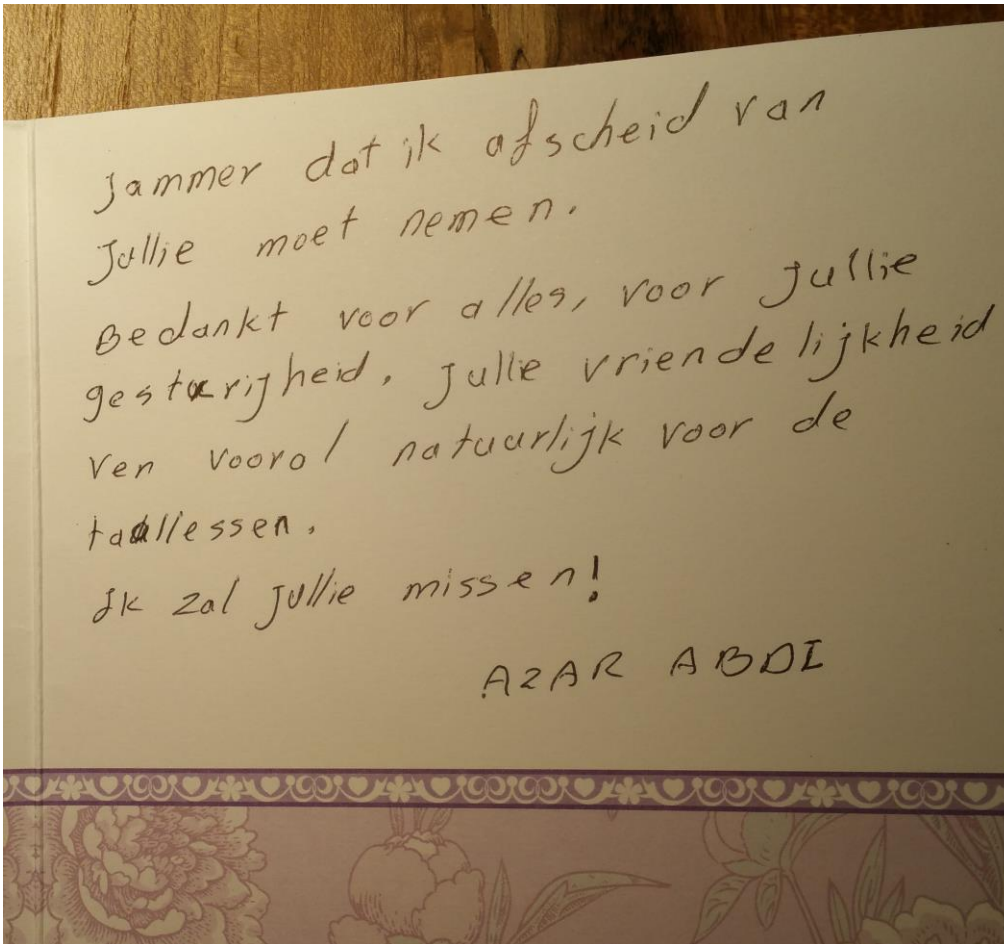 Jammer dat ik afscheid van
Jullie moet nemen.
Bedankt voor alles, voor Jullie
gesturigheid, Jullie vriendelijkheid
Ven vooral natuurlijk voor de
taallessen.
Ik zal Jullie missen!
AZAR ABDI